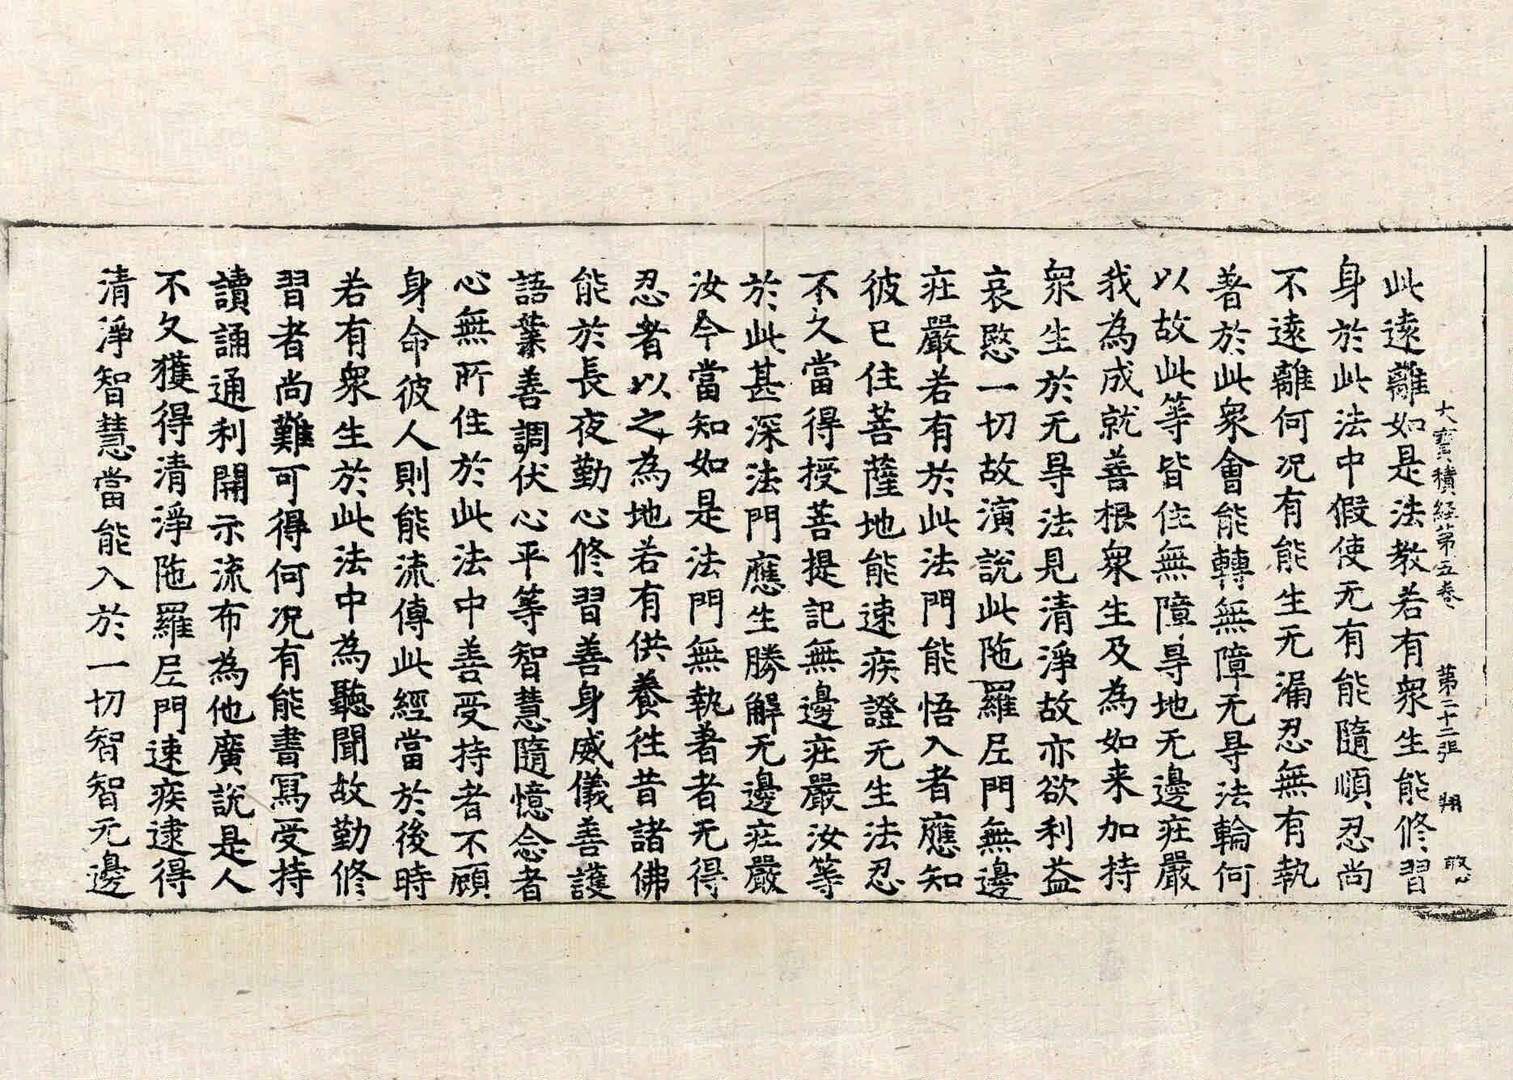 大寶積経第五卷 第二十二張 翔
此遠離如是法教若有衆生能修習
身於此法中假使无有能隨順忍尚
不遠離何况有能生无漏忍無有執
著於此衆會能轉無障无㝵法輪何
以故此等皆住無障㝵地无邊莊嚴
我為成就善根衆生及為如来加持
衆生於无㝵法見清淨故亦欲利益
哀愍一切故演說此陁羅尼門無邊
莊嚴若有於此法門能悟入者應知
彼已住菩薩地能速疾證无生法忍
不久當得授菩提記無邊莊嚴汝等
於此甚深法門應生勝解无邊莊嚴
汝今當知如是法門無執著者无得
忍者以之為地若有供養徃昔諸佛
能於長夜勤心修習善身威儀善護
語業善調伏心平等智慧隨憶念者
心無所住於此法中善受持者不顧
身命彼人則能流傳此經當於後時
若有衆生於此法中為聽聞故勤修
習者尚難可得何况有能書寫受持
讀誦通利開示流布為他廣說是人
不久獲得清淨陁羅尼門速疾逮得
清淨智慧當能入於一切智智无邊